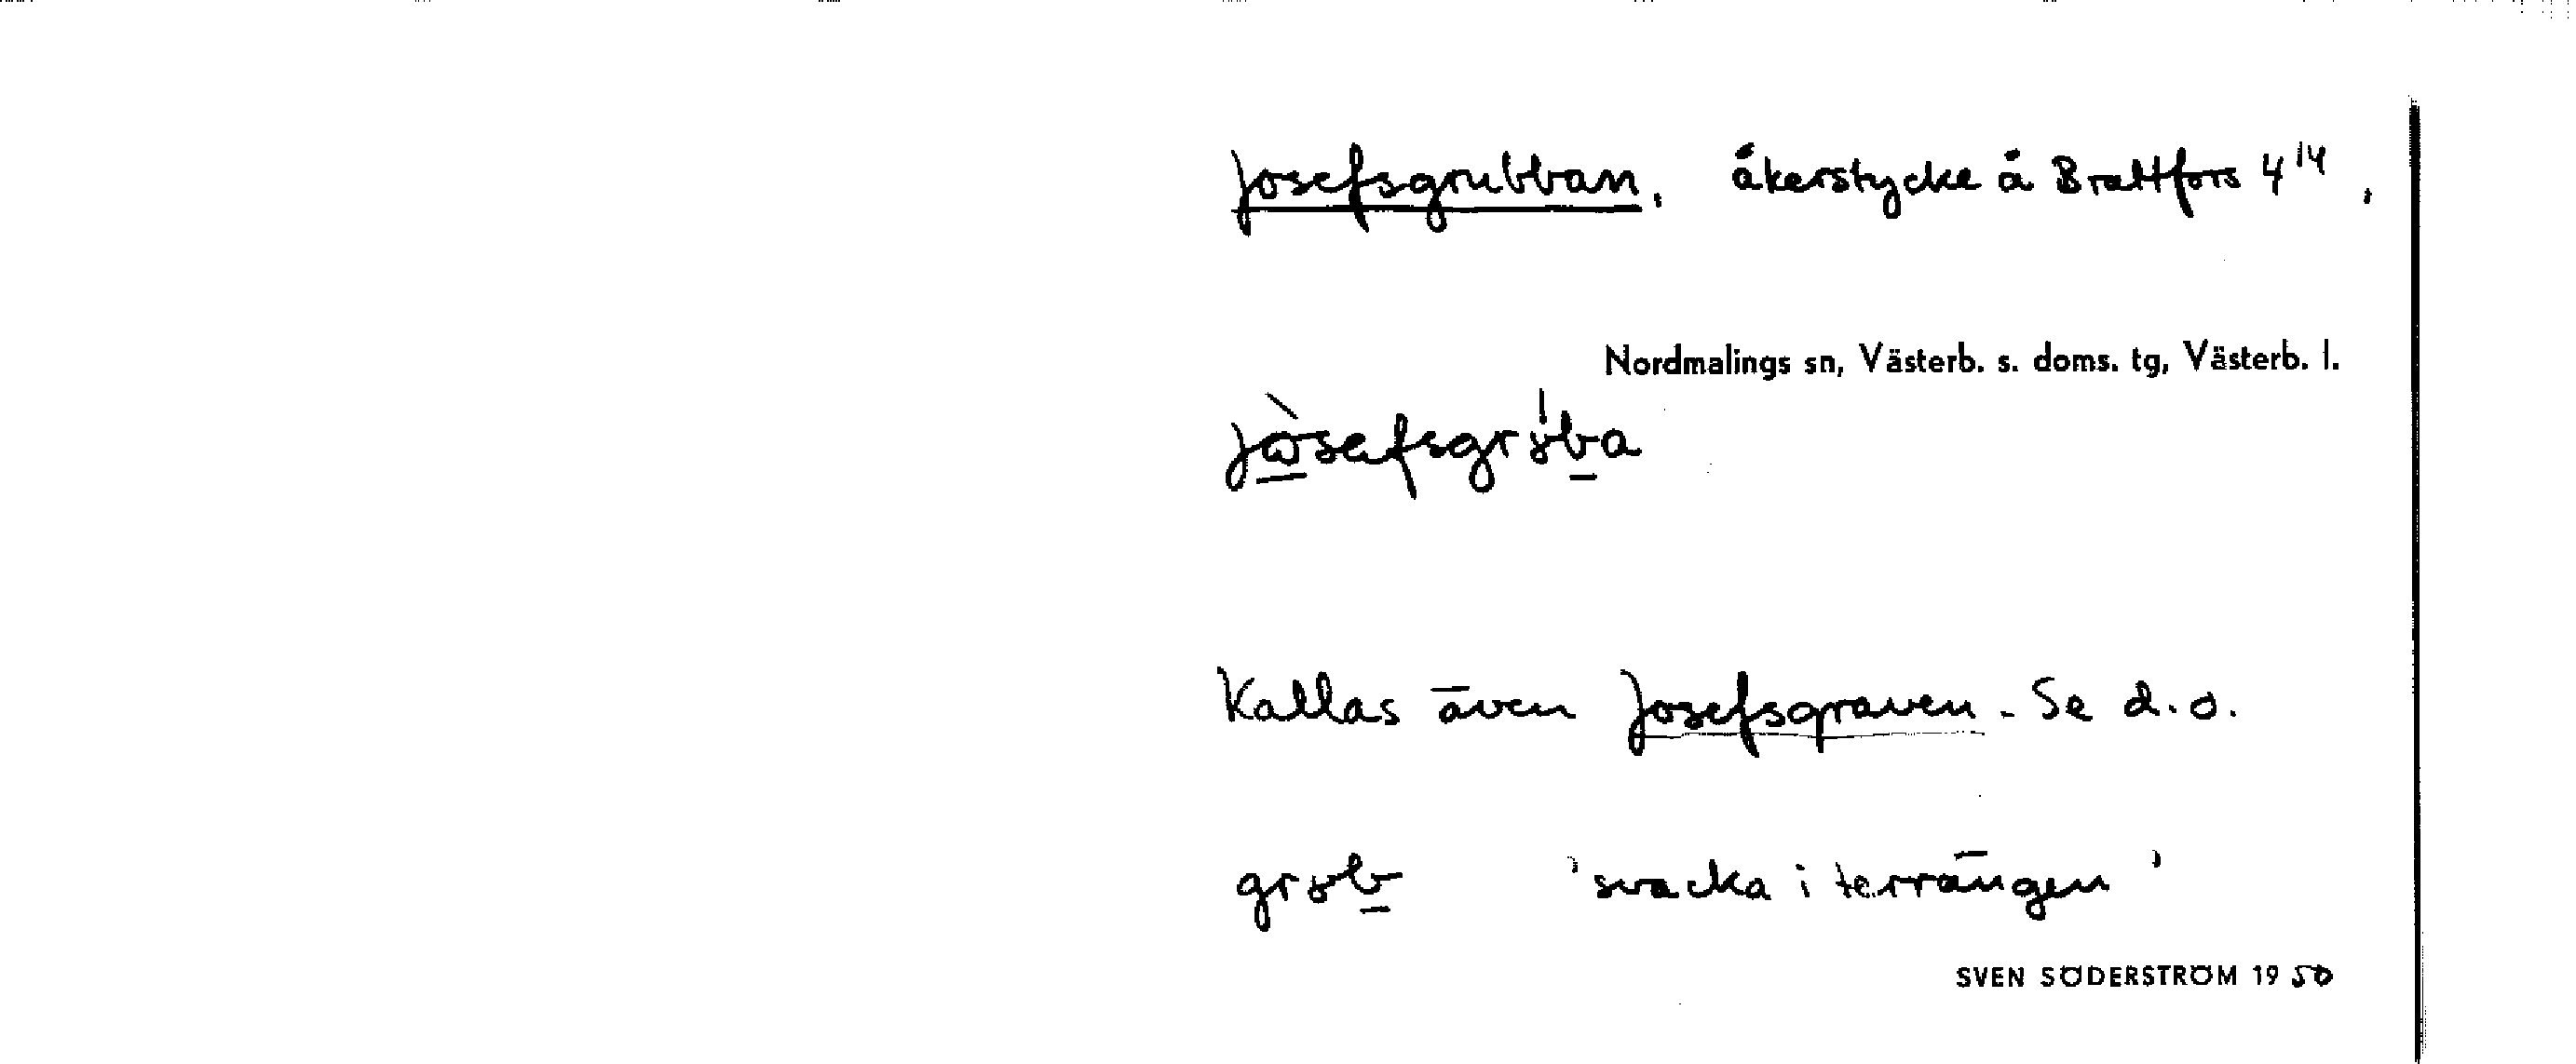 Josefsgrubban, åkerstycke å Brattfors 4¹⁴,
Nordmalings sn, Västerb. s. doms. tg, Västerb. l.
Kallas även Josefsgraven. Se d.o.
'svacka i terrängen'
SVEN SÖDERSTRÖM 1950